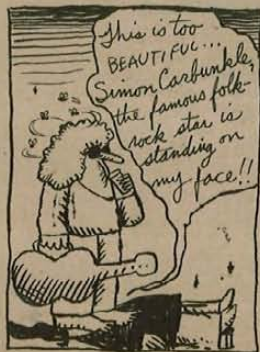 This is too
BEAUTIFUL...
Simon Carbunkle,
the famous folk-
rock star is
standing on
my face!!